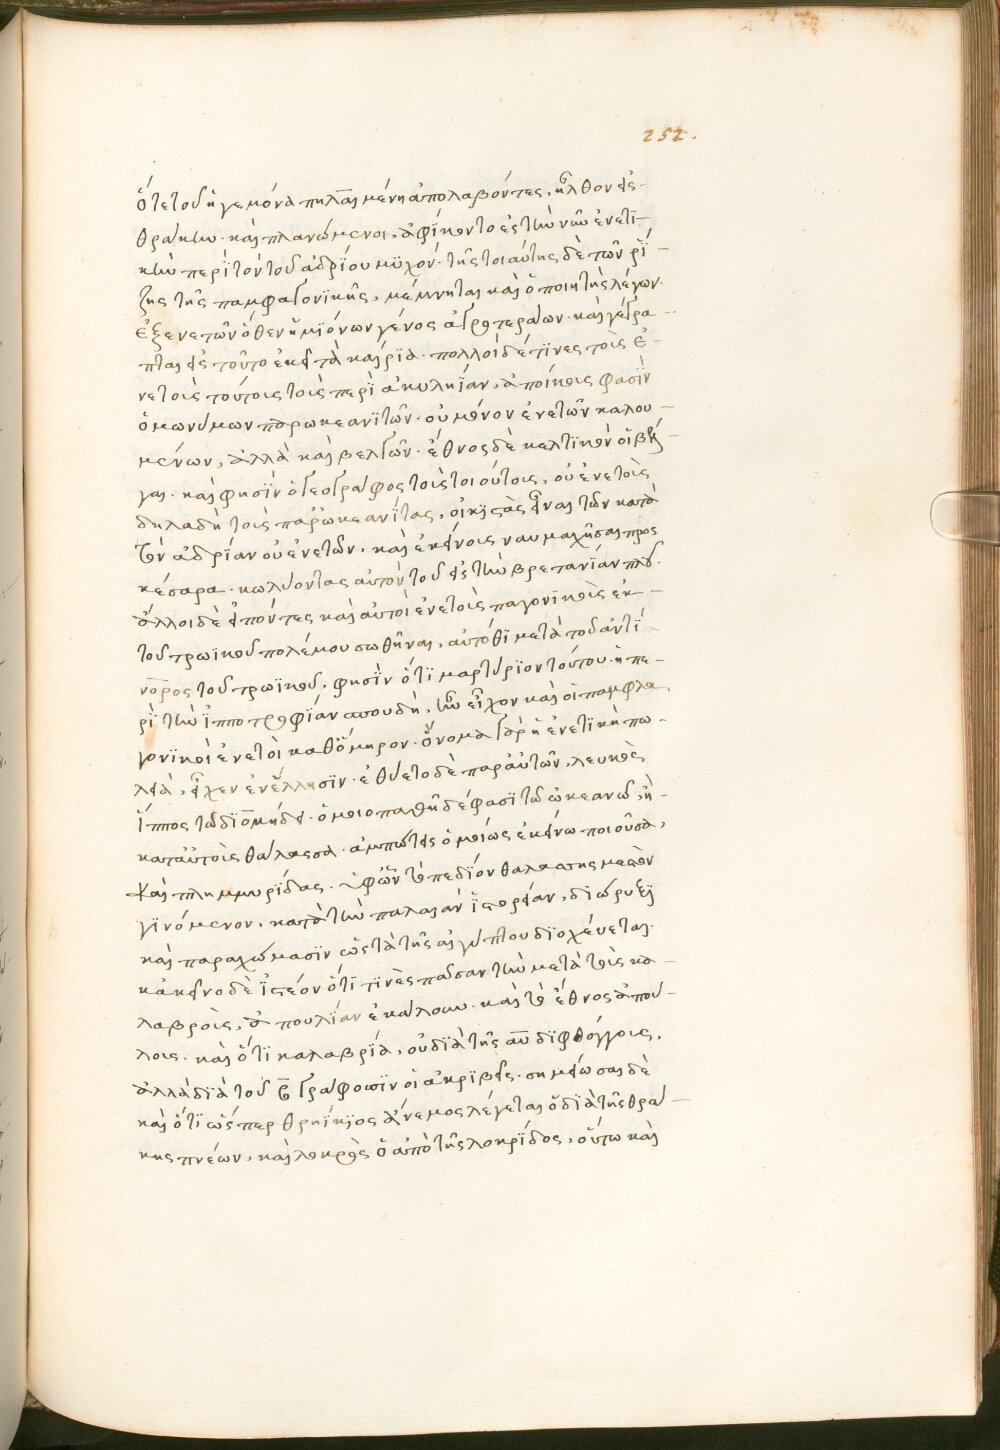 252.
ὅτε τοῦ ἡγεμόνα πηλαιμένη ἀπολαβόντες, ἦλθον εἰς
θράκην· καὶ πλανώμενοι, ἀφίκοντο ἐς τὴν νῦν ἐνετϊ-
κὴν περὶ τὸν τοῦ ἀδρίου μϋχόν· τῆς τοιαύτης δὲ τῶν ῥί
ζης τῆς παμφαγονϊκῆς, μέμνηται καὶ ὁ ποιητὴς λέγων·
ἐξ ενετῶν ὅθεν ἡμϊόνων γένος ἀγροτεράων· καὶ γέγρα-
πται εἰς τοῦτο ἐκεῖ τὰ καίρϊα· πολλοὶ δέ τϊνες τοῖς ἐ-
νετοῖς τούτοις τοῖς περὶ ἀκυληΐαν, ἀποίκοις φασὶν
ὁμωνύμων παρωκεανϊτῶν· οὐ μόνον ἐνετῶν καλου-
μένων, ἀλλὰ καὶ βελγῶν· ἔθνος δὲ κελτϊκὸν οἱ βέλ-
γαι· καὶ φησὶν ὁ γεογράφος τοῖς τοιούτοις, οὐ ἐνετοῖς
δηλαδὴ τοῖς παρωκεανίτας, οἰκιςὰς εἶναι τῶν κατὰ
τὸν ἀδρίαν οὐ ἐνετῶν, καὶ ἐκείνοις ναυμαχῆσαι προς
κέσαρα· κωλύοντας αὐτὸν τοῦ εἰς τὴν βρετανίαν πλοῦ·
ἄλλοι δὲ εἰπόντες καὶ αὐτοὶ ἐνετοῖς παγονϊκοῖς ἐκ-
τοῦ τρωϊκοῦ πολέμου σωθῆναι, αὐτόθϊ μετὰ τοῦ ἀντή-
νορος τοῦ τρωϊκοῦ, φησὶν ὅτϊ μαρτύρϊον τούτου ἡ πε-
ρὶ τὴν ἱπποτροφίαν σπουδὴ, ἣν εἶχον καὶ οἱ παμφλα
γονϊκοὶ ἐνετοὶ καθ' ὅμηρον· ὄνομα γὰρ ἡ ἐνετϊκὴ πω-
λεία, εἶχεν ἐν ἕλλησϊν· ἐθύετο δὲ παρ' αὐτῶν, λευκὸς
ἵππος τῷ δϊομήδει· ὁμοιοπαθῆ δέ φασϊ τῷ ὠκεανῷ, ἡ-
κατ' αὐτοῖς θάλασσα· ἀμπώτεις ὁμοίως ἐκείνω ποιοῦσα,
καὶ πλημμυρίδας. ὑφ' ὧν τὸ πεδίον θαλάσσης μεςὸν
γϊνόμενον, κατὰ τὴν παλαιὰν ἱςορίαν, δϊώρυξϊ
καὶ παραχώμασϊν ὡς τὰ τῆς αἰγύπτου δϊοχέυεται·
κἀκεῖνο δὲ ἰςέον ὅτϊ τϊνὲς πᾶσαν τὴν μετὰ τοῖς κα-
λαβροῖς, ἀπουλίαν ἐκάλουν· καὶ τὸ ἔθνος ἀπού-
λοις· καὶ ὅτϊ καλαβρία, οὐ δϊὰ τῆς αυ δϊφθόγγοις,
ἀλλὰ δϊὰ τοῦ β γράφουσϊν οἱ ἀκρϊβεῖς· σημείωσαι δὲ
καὶ ὅτϊ ὥςπερ θρηίκϊος ἄνεμος λέγεται ὁ δϊὰ τῆς θρά-
κης πνέων, καὶ λοκρὸς ὁ ἀπὸ τῆς λοκρίδος, οὕτω καὶ